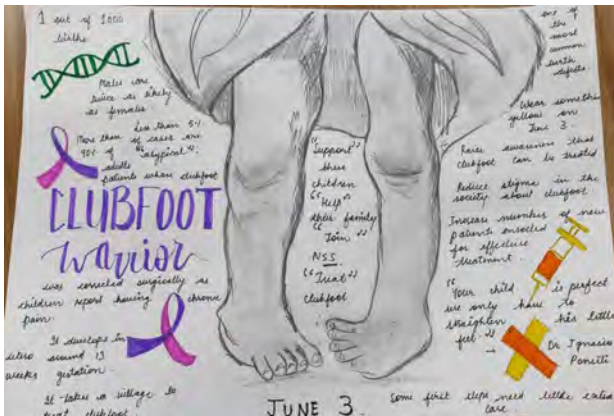 1 out of 1000
births
Males are
twice as likely
as females.
Less than 5%
of cases are
"atypical".
More than
90% of
adult
patients whose clubfoot
CLUBFOOT
Warrior
was corrected surgically as
children report having chronic
pain.
It develops in
utero around 13
weeks gestation.
It takes a village to
treat clubfoot.
"Support"
these
children
"Help"
their family
"Join"
NSS
"Treat"
clubfoot
JUNE 3.
one of
the
most
common
birth
defects.
Wear something
yellow on
June 3.
Raise awareness that
clubfoot can be treated
Reduce stigma in the
society about clubfoot
Increase number of new
patients enrolled
for effective
treatment.
"Your child is perfect
we only have to
straighten his little
feet."
→ Dr Ignacio
Ponseti
Some first steps need little extra
care